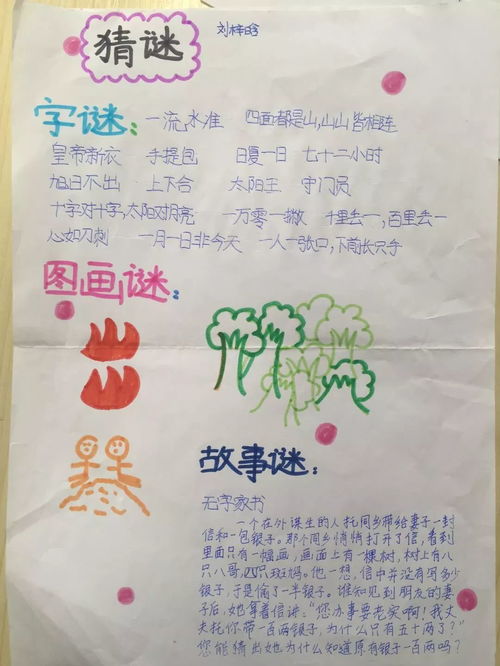 猜谜
刘梓晗
字谜：一流水准 四面都是山,山山皆相连
皇帝新衣 手提包 日复一日 七十二小时
旭日不出 上下合 太阳王 守门员
十字对十字,太阳对月亮 一万零一撇 千里去一,百里去一
心如刀刺 一月一日非今天 一人一张口,下面长只手
图画谜：
故事谜：
无字家书
一个在外谋生的人托同乡带给妻子一封
信和一包银子。那个同乡悄悄打开了信,看到
里面只有一幅画,画面上有一棵树,树上有八
只八哥,四只斑鸠。他一想,信中并没有写多少
银子,于是偷了一半银子。谁知见到朋友的妻
子后,她拿着信讲:“您办事要老实啊!我丈
夫托你带一百两银子,为什么只有五十两了?”
您能猜出她为什么知道原有银子一百两吗?